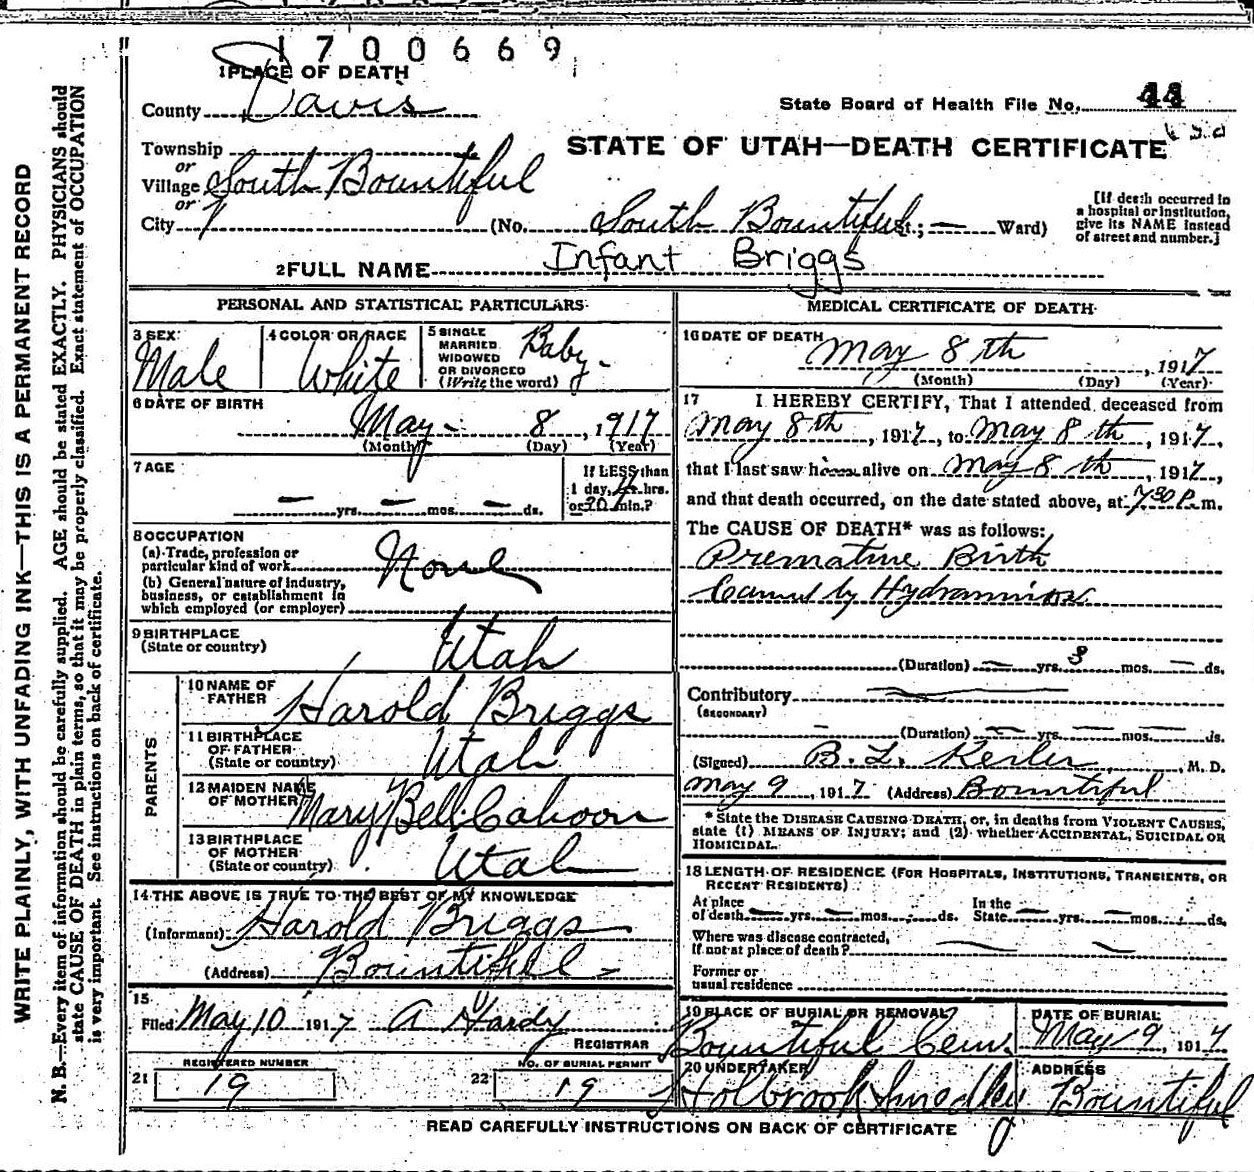 1700669
1 PLACE OF DEATH
County Davis
State Board of Health File No. 44
Township
or
Village South Bountiful
or
City
STATE OF UTAH—DEATH CERTIFICATE
(No. South Bountiful St.; — Ward)
[If death occurred in a hospital or institution, give its NAME instead of street and number.]
2 FULL NAME Infant Briggs
PERSONAL AND STATISTICAL PARTICULARS
3 SEX Male
4 COLOR OR RACE White
5 SINGLE MARRIED WIDOWED OR DIVORCED (Write the word) Baby
6 DATE OF BIRTH
May - 8, 1917
(Month) (Day) (Year)
7 AGE
— yrs. — mos. — ds.
If LESS than 1 day, 4 hrs. or 20 min.?
8 OCCUPATION
(a) Trade, profession or particular kind of work None
(b) General nature of industry, business, or establishment in which employed (or employer)
9 BIRTHPLACE
(State or country) Utah
PARENTS
10 NAME OF FATHER Harold Briggs
11 BIRTHPLACE OF FATHER (State or country) Utah
12 MAIDEN NAME OF MOTHER Mary Bell Cahoon
13 BIRTHPLACE OF MOTHER (State or country) Utah
14 THE ABOVE IS TRUE TO THE BEST OF MY KNOWLEDGE
(Informant) Harold Briggs
(Address) Bountiful
15
Filed May 10 1917 A Hardy
REGISTRAR
REGISTERED NUMBER
21 19
NO. OF BURIAL PERMIT
22 19
MEDICAL CERTIFICATE OF DEATH
16 DATE OF DEATH
May 8th, 1917
(Month) (Day) (Year)
17 I HEREBY CERTIFY, That I attended deceased from
May 8th, 1917, to May 8th, 1917,
that I last saw him alive on May 8th, 1917,
and that death occurred, on the date stated above, at 7:30 P.m.
The CAUSE OF DEATH* was as follows:
Premature Birth
Caused by Hydramnios
(Duration) — yrs. 3 mos. — ds.
Contributory
(SECONDARY)
(Duration) — yrs. — mos. — ds.
(Signed) B. L. , M. D.
May 9, 1917 (Address) Bountiful
* State the DISEASE CAUSING DEATH, or, in deaths from VIOLENT CAUSES,
state (1) MEANS OF INJURY; and (2) whether ACCIDENTAL, SUICIDAL OR
HOMICIDAL.
18 LENGTH OF RESIDENCE (FOR HOSPITALS, INSTITUTIONS, TRANSIENTS, OR
RECENT RESIDENTS)
At place of death — yrs. — mos. ds. In the State — yrs. mos. ds.
Where was disease contracted,
If not at place of death?
Former or
usual residence
19 PLACE OF BURIAL OR REMOVAL
Bountiful Cem.
DATE OF BURIAL
May 9, 1917
20 UNDERTAKER
Holbrook Smedley
ADDRESS
Bountiful
READ CAREFULLY INSTRUCTIONS ON BACK OF CERTIFICATE
WRITE PLAINLY, WITH UNFADING INK—THIS IS A PERMANENT RECORD
N. B.—Every item of information should be carefully supplied. AGE should be stated EXACTLY. PHYSICIANS should
state CAUSE OF DEATH in plain terms, so that it may be properly classified. Exact statement of OCCUPATION
is very important. See instructions on back of certificate.